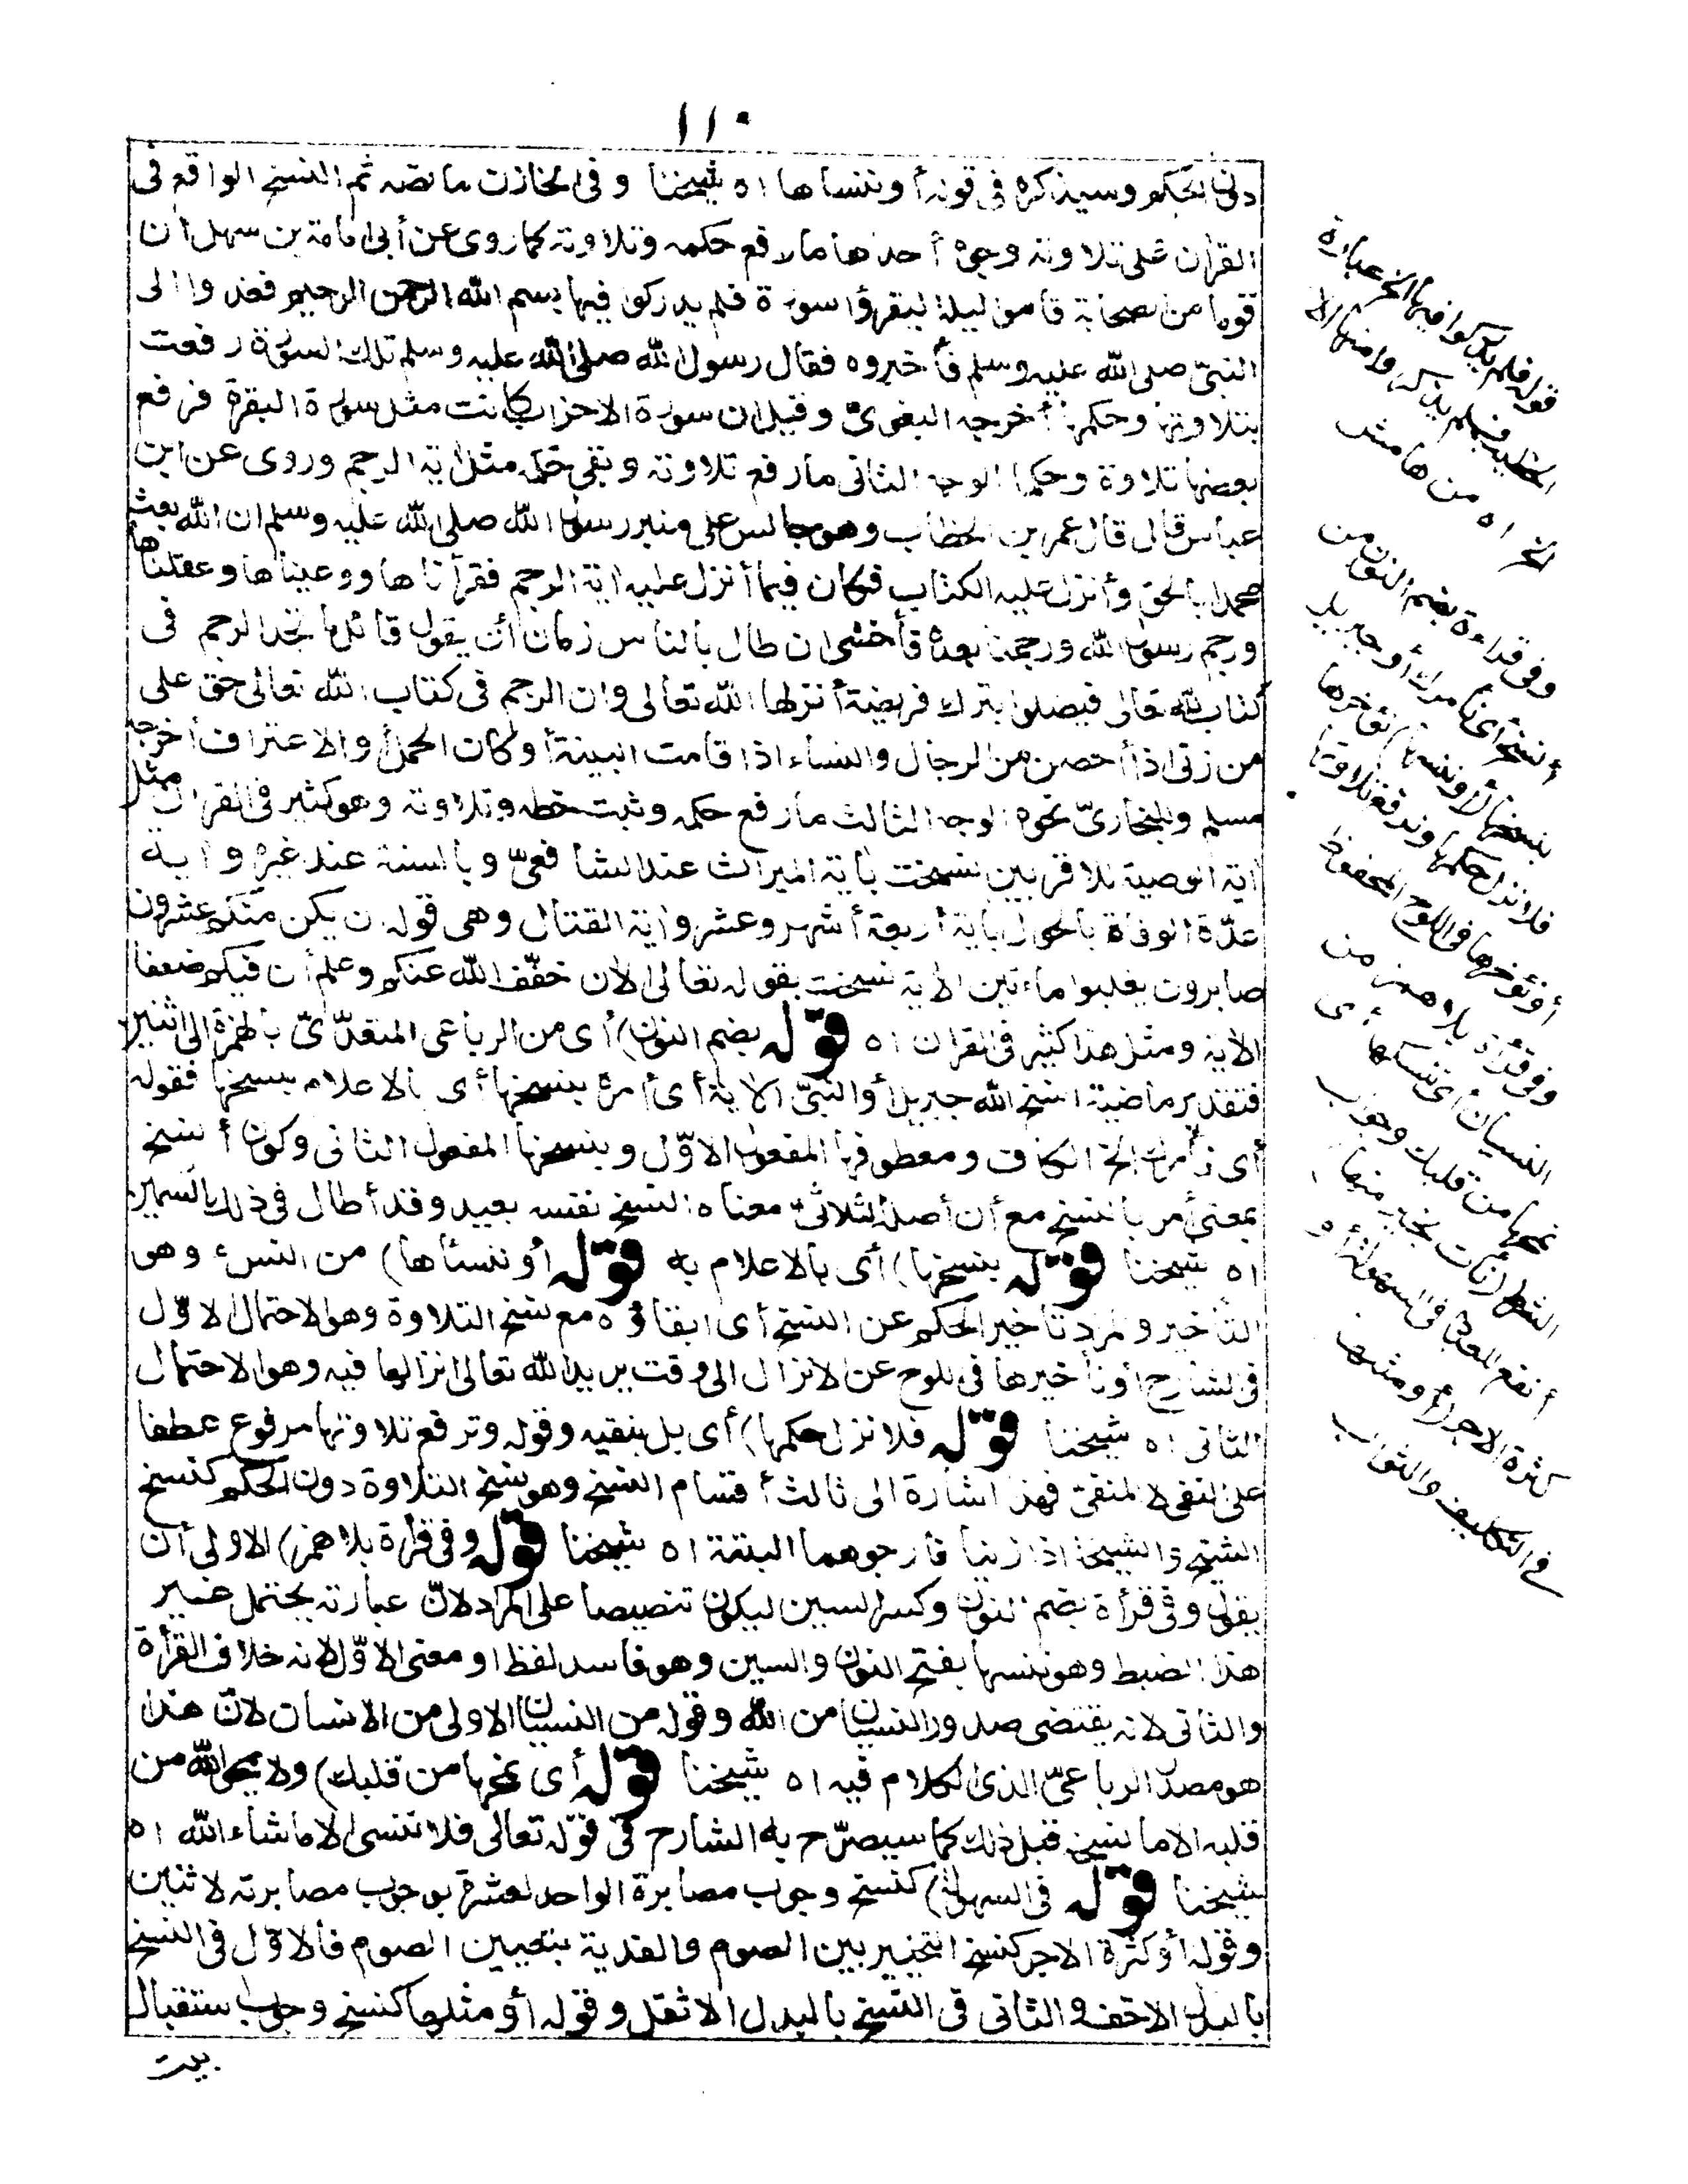 ١١٠
دون الحكم وسيذكره في قوله أو ننساها اه شيخنا وفي الخازن ما نصه ثم النسخ الواقع في
القرآن على تلاوته وجوه أحدها ما رفع حكمه وتلاوته كما روى عن أبي امامة بن سهل أن
قوما من الصحابة قاموا ليلة ليقرؤا سورة فلم يدركوا فيها بسم الله الرحمن الرحيم فغدوا الى
النبيّ صلى الله عليه وسلم فأخبروه فقال رسول الله صلى الله عليه وسلم تلك السورة رفعت
بتلاوتها وحكمها أخرجه البغوىّ وقيل ان سورة الاحزاب كانت مثل سورة البقرة فرفع
بعضها تلاوة وحكما الوجه الثاني ما رفع تلاوته وبقي حكمه مثل اية الرجم وروى عن ابن
عباس قال قال عمر بن الخطاب وهو جالس على منبر رسول الله صلى الله عليه وسلم ان الله بعث
محمدا بالحق وأنزل عليه الكتاب فكان فيما أنزل عليه اية الرجم فقرأناها ووعيناها وعقلناها
ورجم رسول الله ورجمنا بعده فأخشى ان طال بالناس زمان أن يقول قائل ما نجد الرجم في
كتاب الله تعالى فيضلوا بترك فريضة أنزلها الله تعالى وان الرجم في كتاب الله تعالى حق على
من زنى اذا أحصن من الرجال والنساء اذا قامت البينة أو كان الحمل أو الاعتراف أخرجه
مسلم والبخارىّ نحوه الوجه الثالث ما رفع حكمه وثبت خطه وتلاوته وهو كثير في القرآن مثل
اية الوصية للاقربين نسخت باية الميراث عند الشافعىّ وبالسنة عند غيره واية
عدّة الوفاة بالحول باية أربعة أشهر وعشر واية القتال وهي قوله ان يكن منكم عشرون
صابرون يغلبوا مائتين الاية نسخت بقوله تعالى الان خفّف الله عنكم وعلم أن فيكم ضعفا
الاية ومثل هذا كثير في القران اه قوله بضم النون) أى من الرباعي المتعدّى بالهمزة الى اثنين
فتقدير ماضيه انسخ الله جبريل أو النبيّ الاية أى أمره بنسخها أى بالاعلام بنسخها فقوله
أى نأمرك الخ الكاف ومعطوفها المفعول الاوّل وبنسخها المفعول الثاني وكون أنسخ
بمعنى أمر بالنسخ مع أن أصله الثلاثىّ معناه النسخ نفسه بعيد وقد أطال في ذلك السمين
اه شيخنا قوله بنسخها) أى بالاعلام به قوله أو ننسأها) من النسء وهو
التأخير والمراد تأخير الحكم عن النسخ أى ابقاؤه مع نسخ التلاوة وهو الاحتمال الاوّل
في الشارح أو تأخيرها في اللوح عن الانزال الى وقت يريد الله تعالى انزالها فيه وهو الاحتمال
الثاني اه شيخنا قوله فلا نزل حكمها) أى بل نبقيه وقوله وترفع تلاوتها مرفوع عطفا
على النفي لا المنفىّ فهذا اشارة الى ثالث أقسام النسخ وهو نسخ التلاوة دون الحكم كنسخ
الشيخ والشيخة اذا زنيا فارجموهما البتة اه شيخنا قوله وفي قرأة بلا همز) الاولى أن
يقول وفي قرأة بضم النون وكسر السين ليكون تنصيصا على المراد لانّ عبارته يحتمل غير
هذا الضبط وهو ننسها بفتح النون والسين وهو فاسد لفظا ومعنى الاوّل لانه خلاف القرأة
والثاني لانه يقتضى صدور النسيان من الله وقوله من النسيان الاولى من الانسان لانّ هذا
هو مصدر الرباعىّ الذى الكلام فيه اه شيخنا قوله أى نمحها من قلبك) ولا يمحو الله من
قلبه الا ما نسخ قبل ذلك كما سيصرّح به الشارح في قوله تعالى فلا تنسى الا ما شاء الله اه
شيخنا قوله في السهولة) كنسخ وجوب مصابرة الواحد لعشرة بوجوب مصابرته لاثنين
وقوله أو كثرة الاجر كنسخ التخيير بين الصوم والفدية بتعيين الصوم فالاوّل في النسخ
بالبدل الاخف والثاني في النسخ بالبدل الاثقل وقوله أو مثلها كنسخ وجوب استقبال
بيت
قوله فلم يدركوا فيها الخ عبارة
الخطيب فلم يذكروا منها الا
الخ اه من هامش
وفي قراءة بضم النون من
أنسخ أى نأمرك أو جبريل
بنسخها أو ننسأها نؤخرها
فلا نزل حكمها ونرفع تلاوتها
أو نؤخرها في اللوح المحفوظ
وفي قرأة بلا همز من
النسيان أى ننسكها أى
نمحها من قلبك وجواب
الشرط (نأت بخير منها)
أنفع للعباد في السهولة أو
كثرة الاجر أو مثلها
في التكليف والثواب